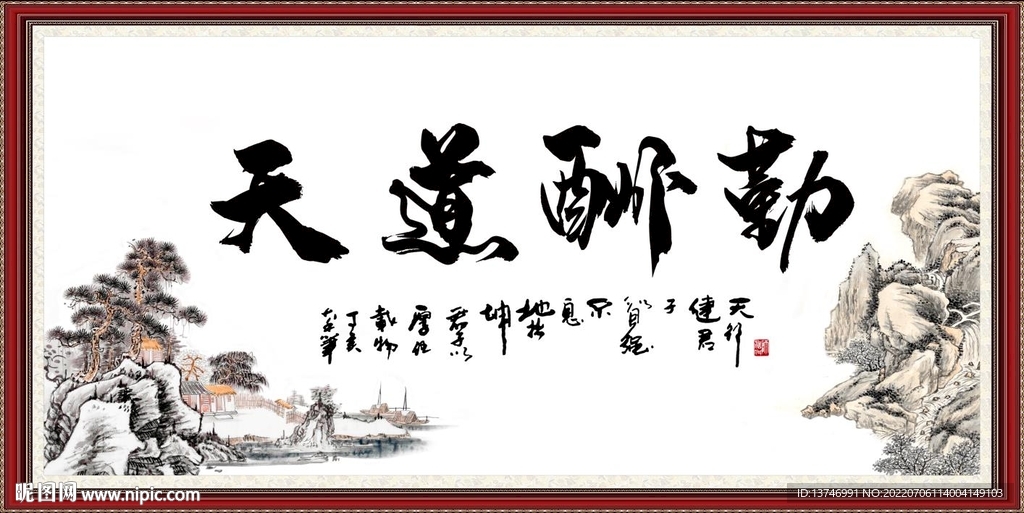 天道酬勤
天行
健君
子
以自强
不
息
地势
坤
君子以
厚德
載物
丁亥
昵图网 www.nipic.com
ID:13746991 NO:20220706114004149103